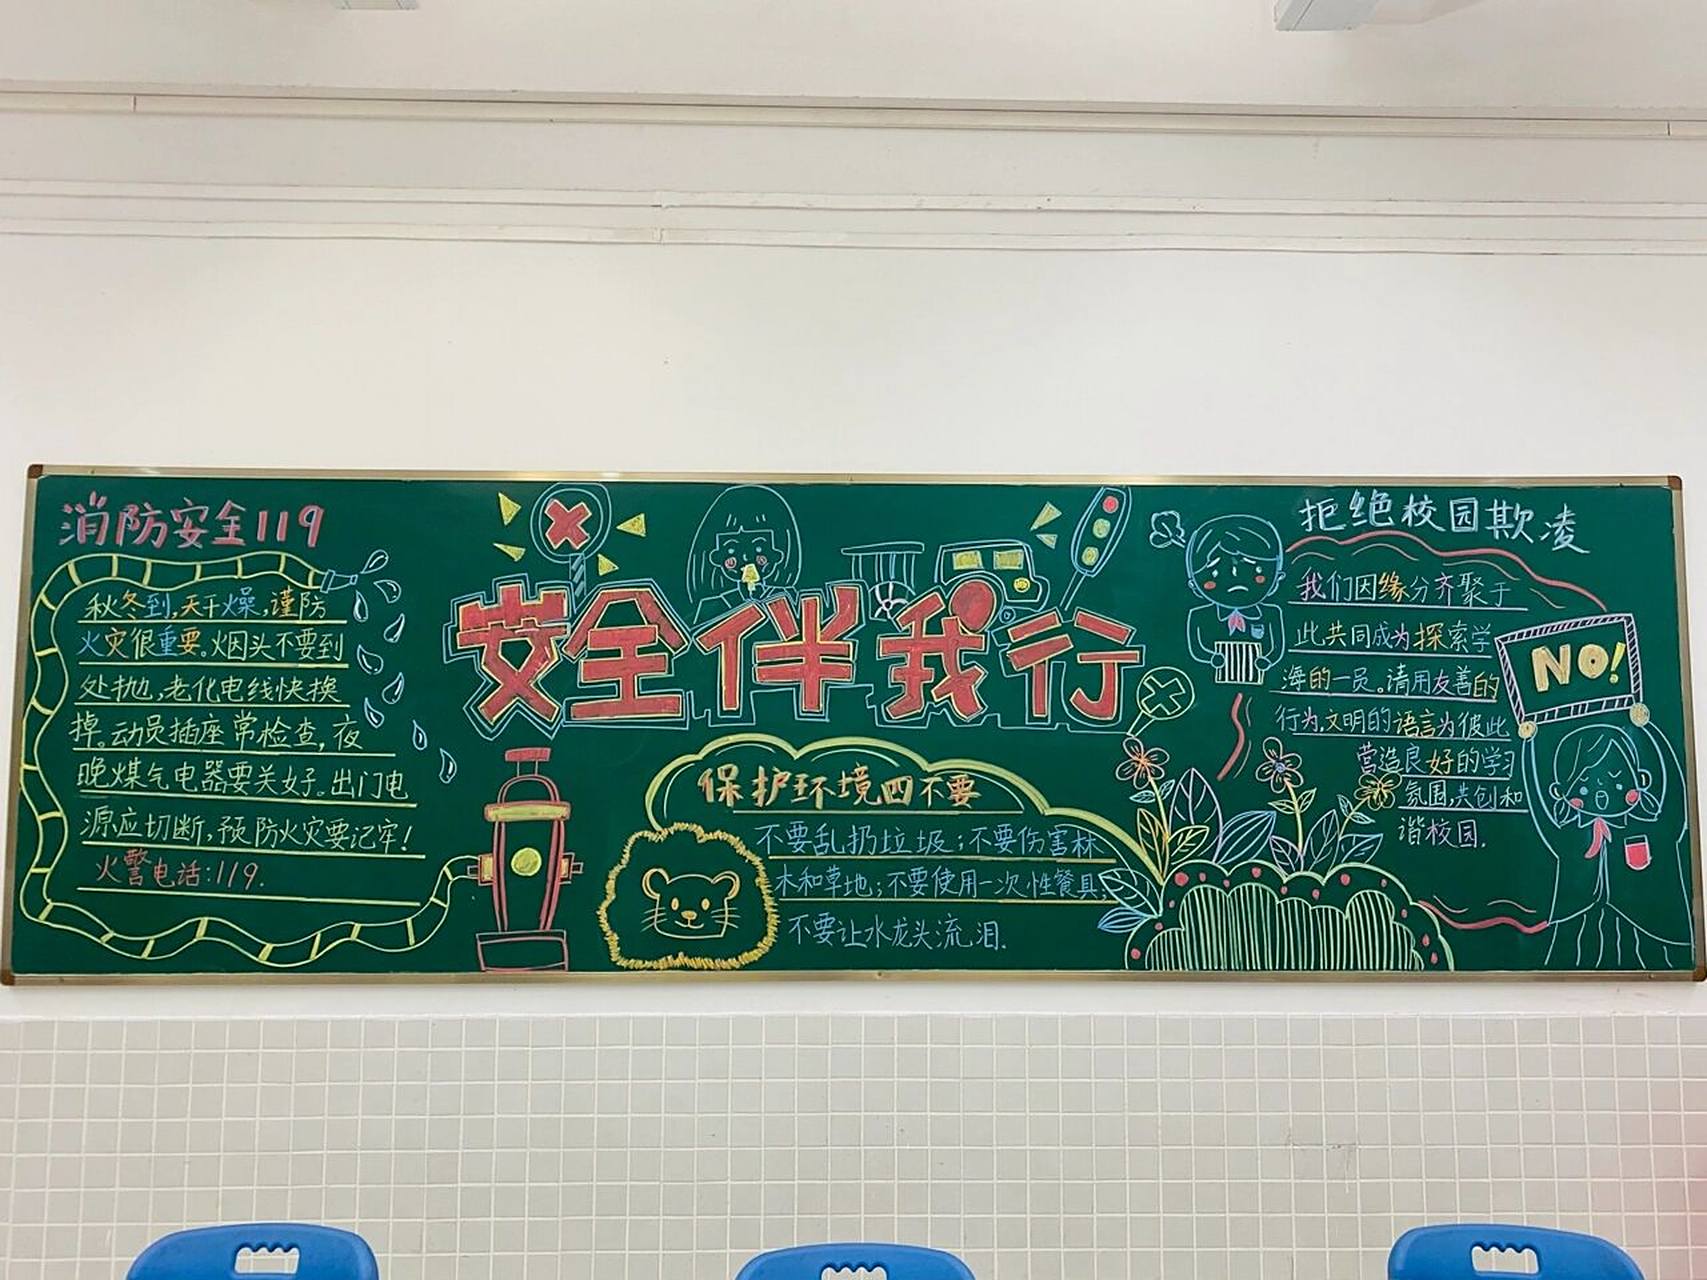 消防安全119
秋冬到,天干燥,谨防
火灾很重要。烟头不要到
处抛,老化电线快换
掉。动员插座常检查,夜
晚煤气电器要关好。出门电
源应切断,预防火灾要记牢!
火警电话:119.
安全伴我行
保护环境四不要
不要乱扔垃圾;不要伤害林
木和草地;不要使用一次性餐具;
不要让水龙头流泪.
拒绝校园欺凌
我们因缘分齐聚于
此共同成为探索学
海的一员。请用友善的
行为,文明的语言为彼此
营造良好的学习
氛围,共创和
谐校园.
NO!